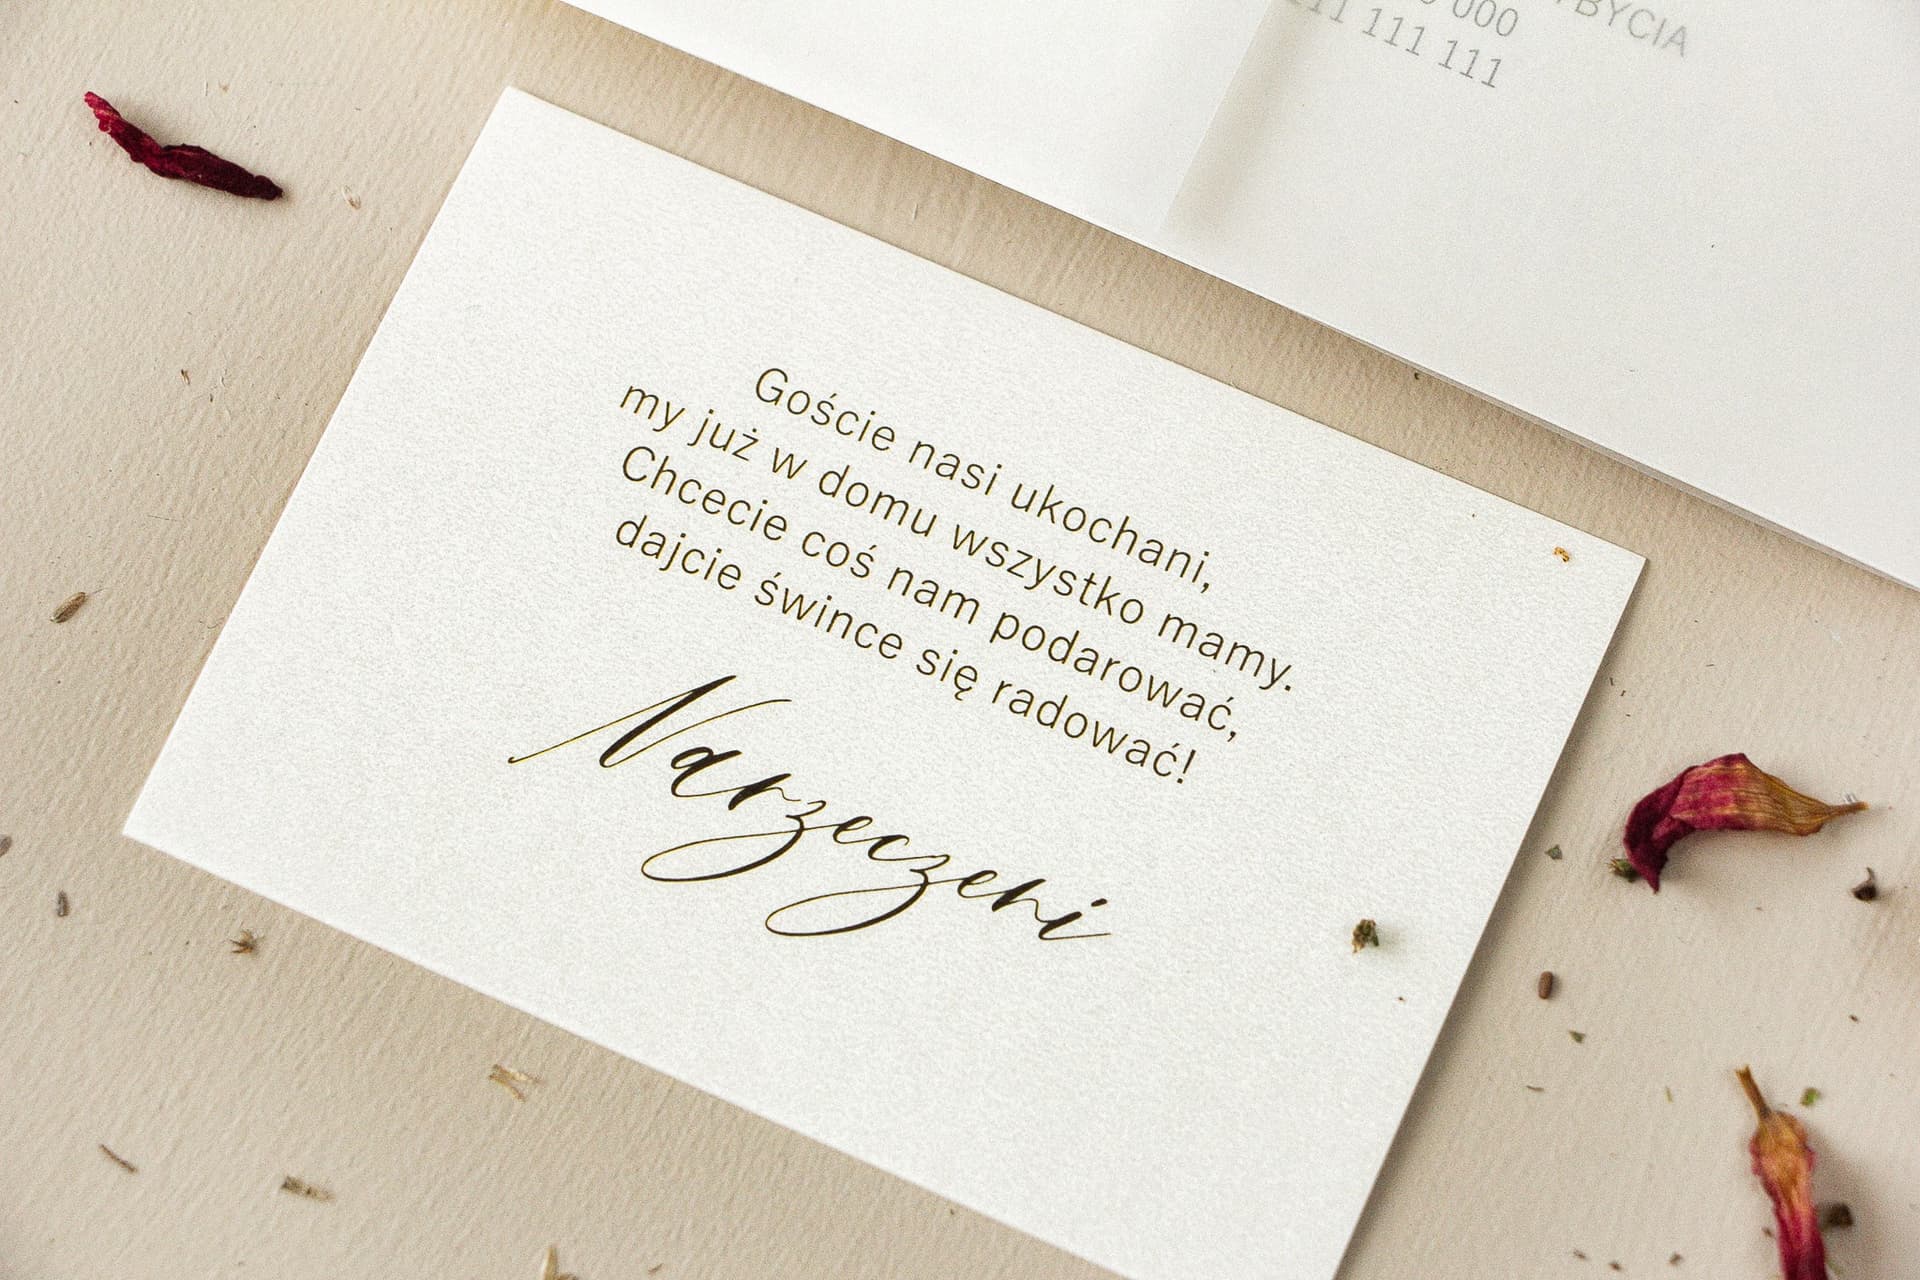 YBYCIA
000
111 111
Goście nasi ukochani,
my już w domu wszystko mamy.
Chcecie coś nam podarować,
dajcie śwince się radować!
Narzeczeni